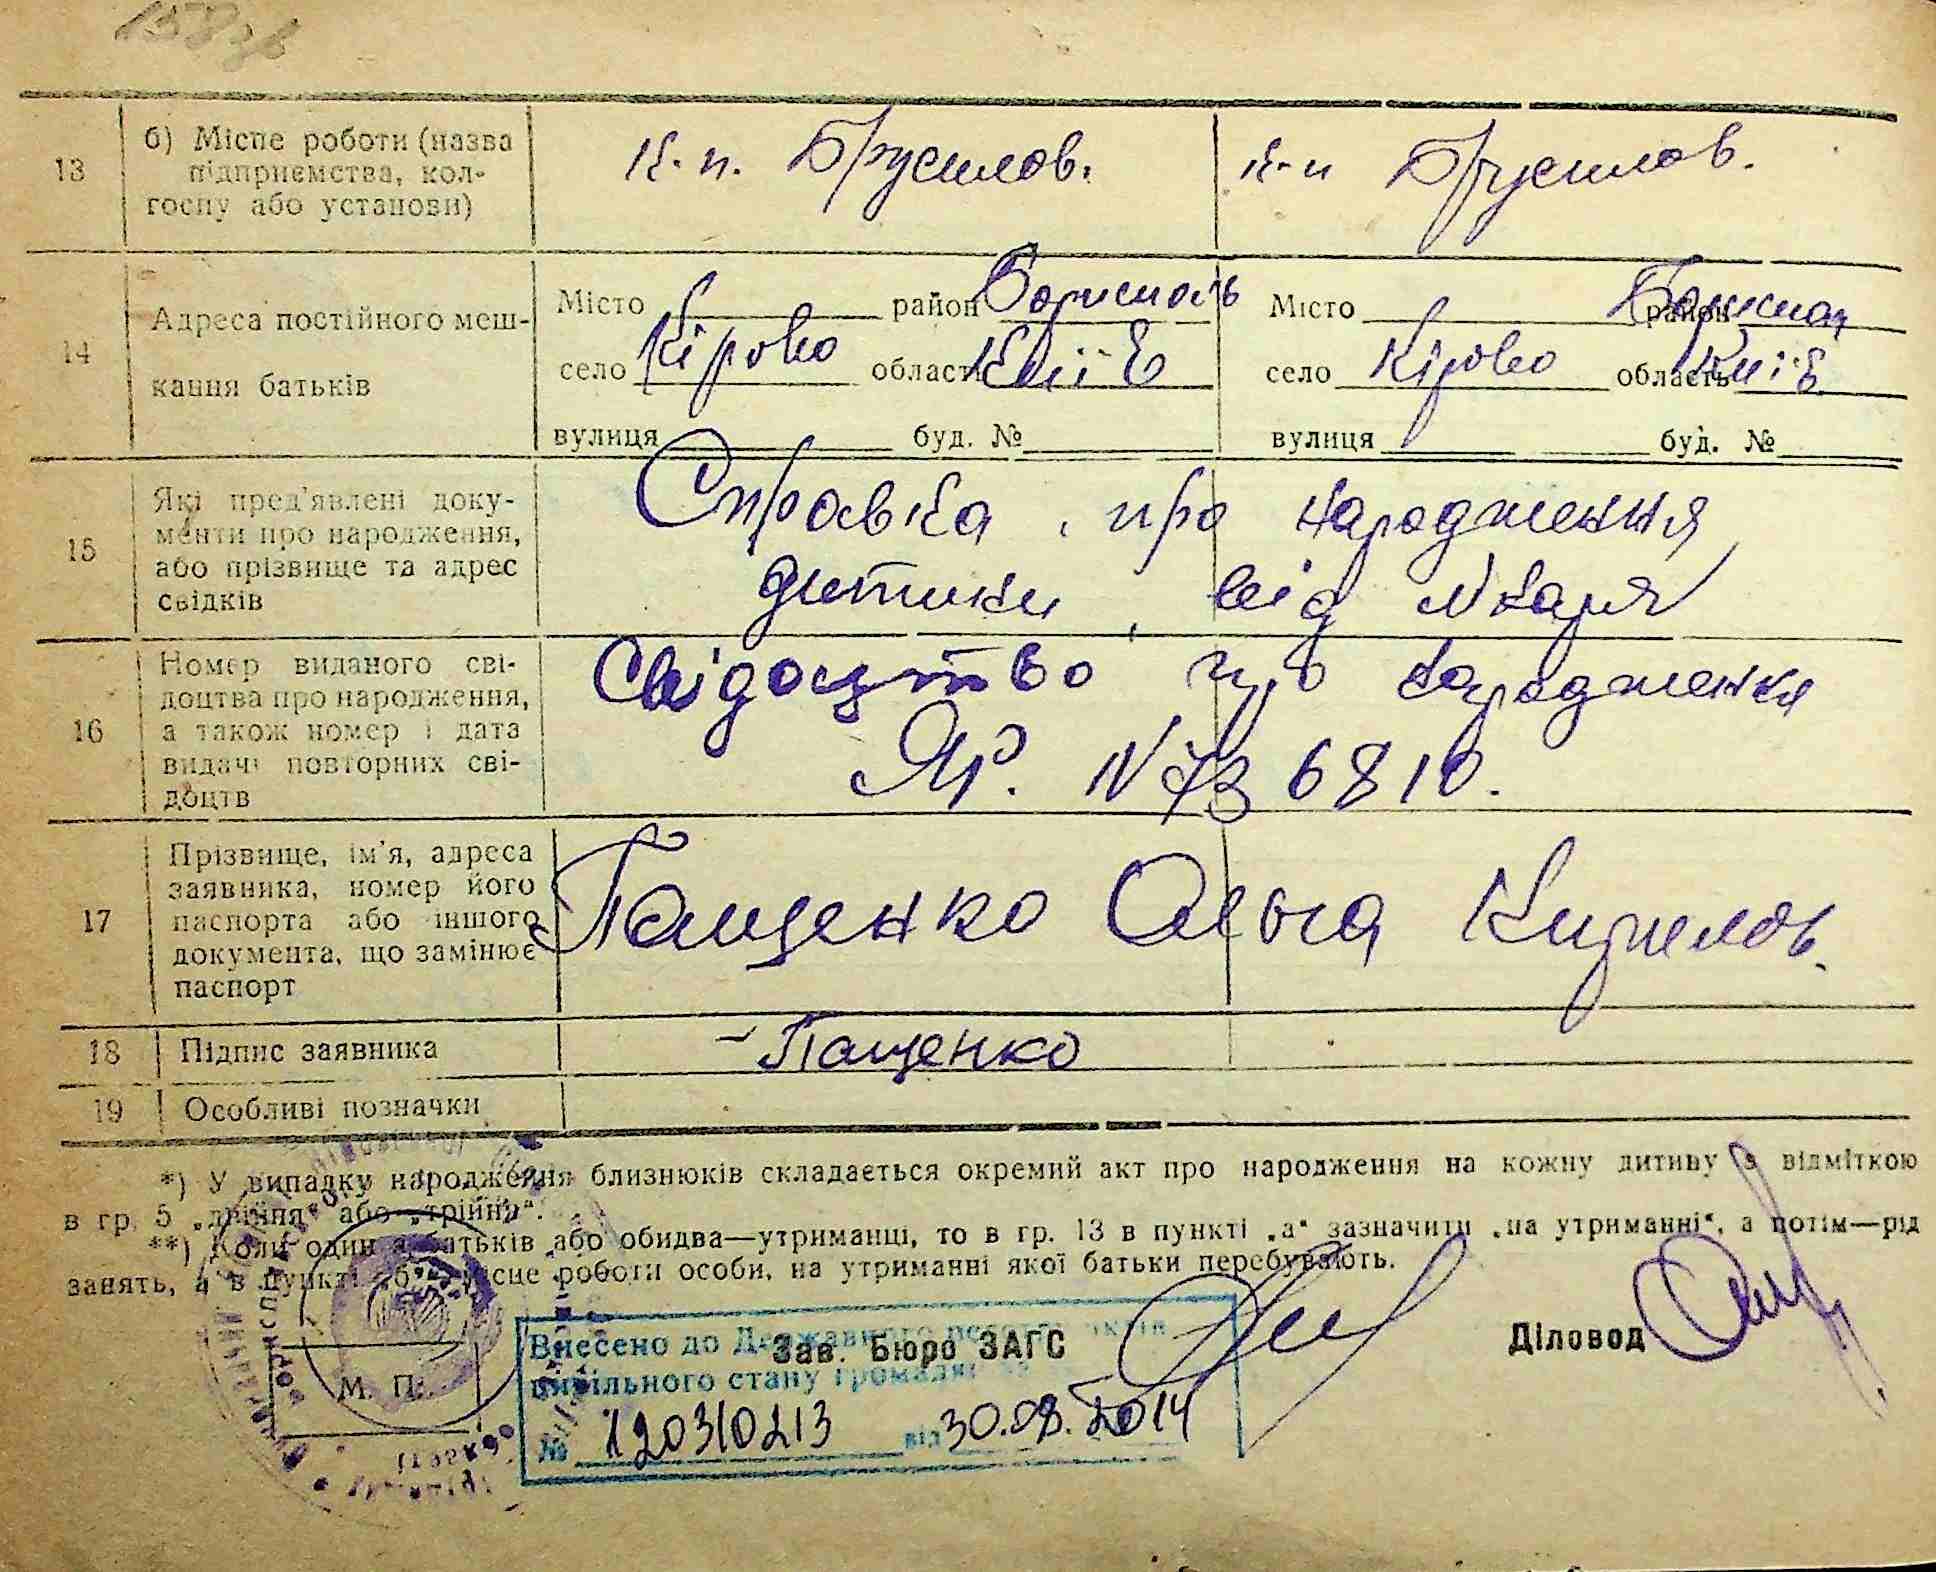 13
б) Місце роботи (назва
підприємства, кол-
госпу або установи)
к-п. Брусилов.
к-п Брусилов.
14
Адреса постійного меш-
кання батьків
Місто район Бориспіль
село Кірово область Київ
вулиця буд. №
Місто район Борисп
село Кірово область Київ
вулиця буд. №
15
Які пред'явлені доку-
менти про народження,
або прізвище та адрес
свідків
Справка про народження
дитини від лікаря
16
Номер виданого сві-
доцтва про народження,
а також номер і дата
видачі повторних сві-
доцтв
Свідоцтво про народження
ЯР. N 736810.
17
Прізвище, ім'я, адреса
заявника, номер його
паспорта або іншого
документа, що замінює
паспорт
Пащенко Ольга Кирилов.
18
Підпис заявника
Пащенко
19
Особливі позначки
*) У випадку народження близнюків складається окремий акт про народження на кожну дитину з відміткою
в гр. 5 „двійня“ або „трійня“.
**) Коли один з батьків або обидва—утриманці, то в гр. 13 в пункті „а“ зазначити „на утриманні“, а потім—рід
занять, а в пункті „б“ місце роботи особи, на утриманні якої батьки перебувають.
М. П.
Зав. Бюро ЗАГС
Діловод
Внесено до Державного реєстру актів
цивільного стану громадян
№ 120310213 від 30.08.2014